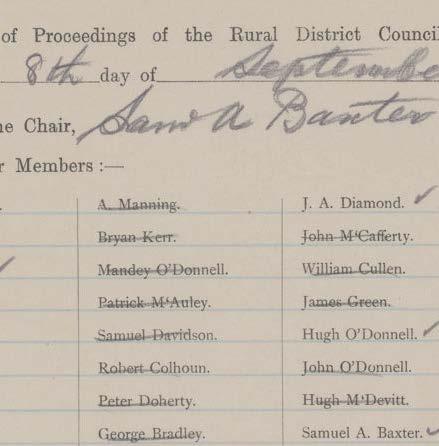 of Proceedings of the Rural District Counci
8th day of Septembe
he Chair, Sam A Baxter
r Members :—
A. Manning. J. A. Diamond.
Bryan Kerr. John M'Cafferty.
Mandey O'Donnell. William Cullen.
Patrick M'Auley. James Green.
Samuel Davidson. Hugh O'Donnell.
Robert Colhoun. John O'Donnell.
Peter Doherty. Hugh M'Devitt.
George Bradley. Samuel A. Baxter.